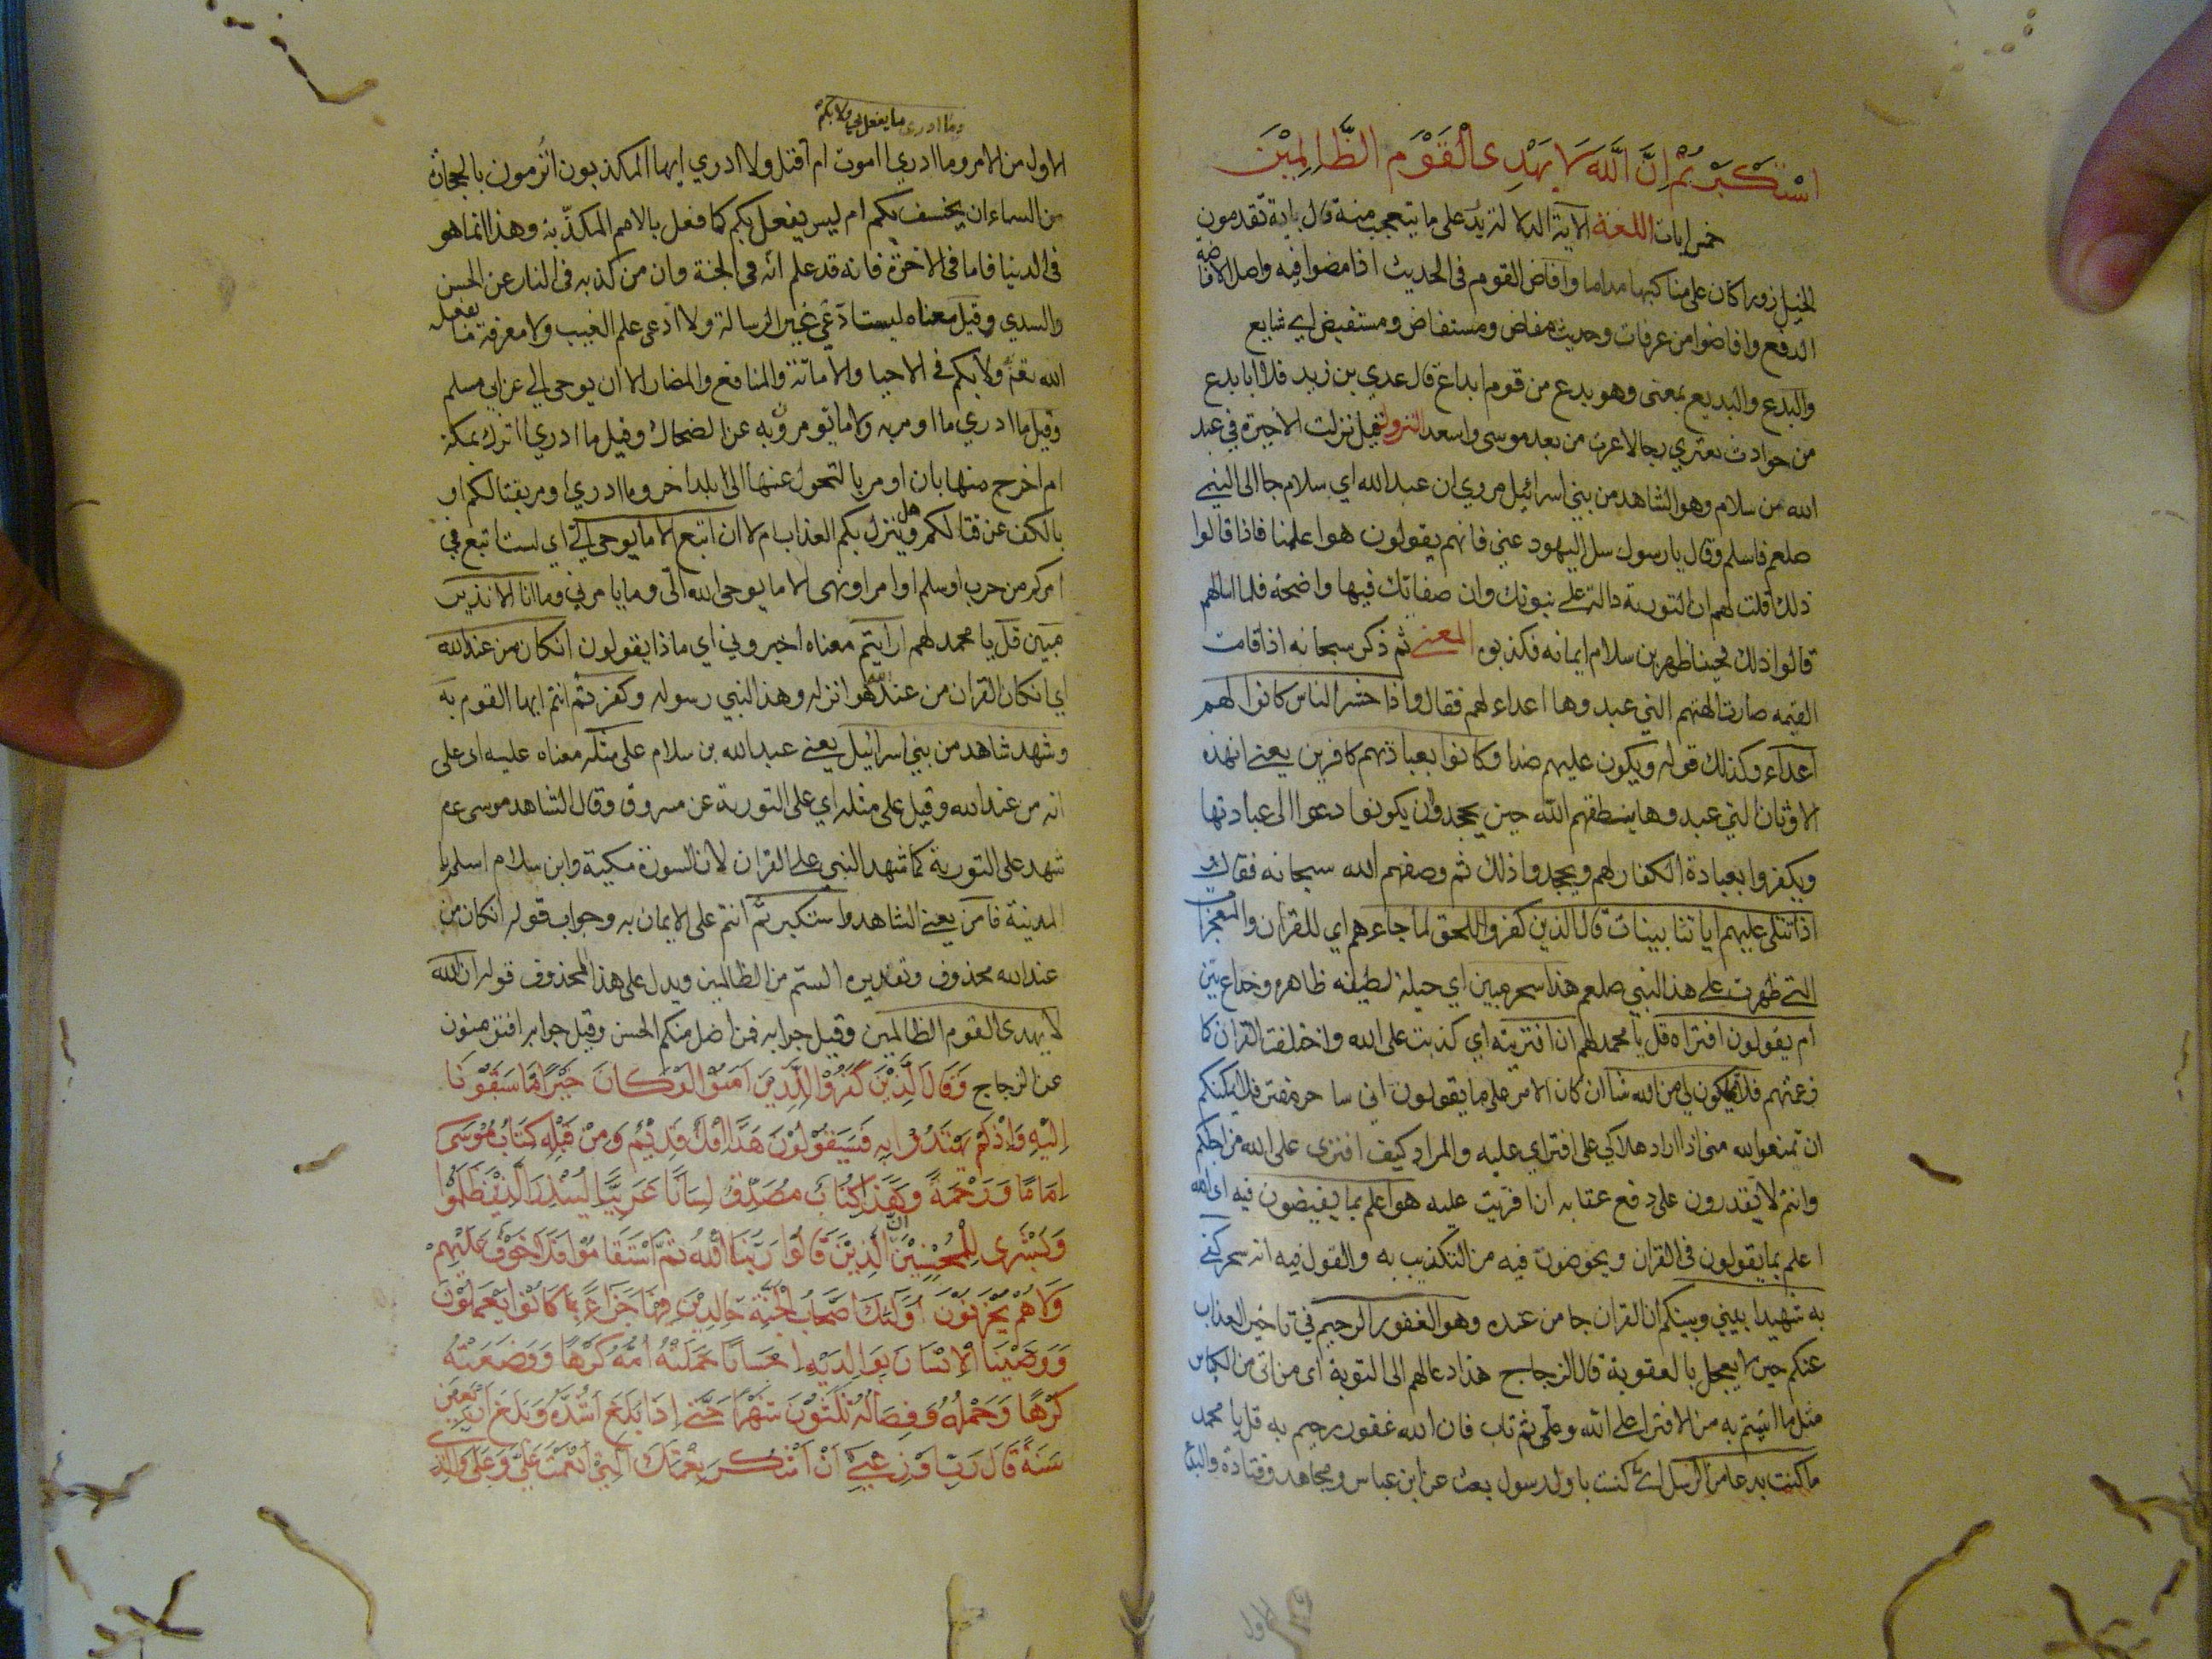 استكبرتم ان الله لا يهدى القوم الظالمين
خمس ايات اللغة الآية الدلالة يدعلى ما يتعجب منه قال باية تقدمون
الخيل زورا كان على مناكبها مداما وافاض القوم فى الحديث اذا مضوا فيه واصل الافاضة
الدفع وافاضوا من عرفات وحديث مفاض ومستفاض ومستفيض اي شايع
والبدع والبديع بمعنى وهو بدع من قوم ابداع قال عدي بن زيد فلا انا بدع
من حوادث تعتري رجالا عرت من بعد موسى واسعد النزول قيل نزلت الاخيرة في عبد
الله من سلام وهو الشاهد من بني اسرائيل مروي ان عبد الله اي سلام جا الى النبي
صلعم فاسلم وقال يا رسول سل اليهود عني فانهم يقولون هو اعلمنا فاذا قالوا
ذلك قلت لهم ان التورية دالة على نبوتك وان صفاتك فيها واضحة فلما سالهم
قالوا ذلك فحينئذ اظهر بن سلام ايمانه فكذبوه المعنى ثم ذكر سبحانه اذا قامت
القيمه صارت الهتهم التي عبدوها اعداء لهم فقال واذا حشر الناس كانوا لهم
اعداء وكذلك قوله ويكون عليهم ضدا وكانوا بعبادتهم كافرين يعني ان هذه
الاوثان التي عبدوها ينطقهم الله حين يجحدون ان يكونوا دعوا الى عبادتها
ويكفروا بعبادة الكفار لهم ويجحدوا ذلك ثم وصفهم الله سبحانه فقال و
اذا تتلى عليهم اياتنا بينات قال الذين كفروا للحق لما جاءهم اي للقران والمعجزات
التي ظهرت على هذا النبي صلعم هذا سحر مبين اي حيلة لطيفه ظاهره وخداع بين
ام يقولون افتراه قل يا محمد لهم ان افتريته اي كذبت على الله واختلقت القران كا
زعمتهم فلا تملكون لي من الله شيا ان كان الامر على ما يقولون اني ساحر مفتر فلا يمكنكم
ان تمنعوا الله مني اذا اراد هلاكي على افتراي عليه والمراد كيف افتري على الله من اجلكم
وانتم لا تقدرون على دفع عقابه ان افتريت عليه هو اعلم بما يفيضون فيه اى الله
اعلم بما يقولون فى القران ويخوضون فيه من التكذيب به والقول فيه انه سحر كفى
به شهيدا بيني وبينكم ان القران جا من عنده وهو الغفور الرحيم في تاخير العذاب
عنكم حين لا يعجل بالعقوبة قال الزجاج هذا دعا لهم الى التوبة اى من اتى من الكباير
مثل ما اتيتم به من الافترا على الله وعلى ثم تاب فان الله غفور رحيم به قل يا محمد
ما كنت بدعا من الرسل اي كنت باول رسول بعث عن ابن عباس ومجاهد وقتادة
وما ادرى ما يفعل بي ولا بكم
الاول من الامر وما ادري اموت ام اقتل ولا ادري ايها المكذبون اترمون بالحجارة
من السماء ان يخسف بكم ام ليس يفعل بكم كما فعل بالامم المكذبة وهذا انما هو
فى الدنيا فاما فى الاخرة فانه قد علم انه في الجنة وان من كذبه فى النار عن الحسن
والسدي وقيل معناه ليست ادعى غير الرسالة ولا ادعى علم الغيب ولا معرفة ما يفعله
الله بي ولا بكم في الاحيا والاماتة والمنافع والمضار الا ان يوحى الي عن ابي مسلم
وقيل ما ادري ما اومر به ولا ما تومرون به عن الضحاك وقيل ما ادري اترك بمكة
ام اخرج منها بان اومر بالتحول عنها الى بلد اخر وما ادري اومر بقتالكم او
بالكف عن قتالكم وهل ينزل بكم العذاب ام لا ان اتبع الا ما يوحى الي اي لست اتبع في
امركم من حرب او سلم او امر او نهى الا ما يوحى الله الى وما يامرني وما انا الا نذير
مبين قل يا محمد لهم ارايتم معناه اخبروني اي ماذا يقولون ان كان من عند الله
اي ان كان القران من عند الله هو انزله وهذا النبي رسوله وكفرتم انتم ايها القوم به
وشهد شاهد من بني اسرائيل يعني عبد الله بن سلام على مثله معناه عليه اى على
انه من عند الله وقيل على مثله اي على التورية عن مسروق وقال الشاهد موسى عم
شهد على التورية كما شهد النبي على القران لان السورة مكية وابن سلام اسلم با
المدينة فامن يعني الشاهد واستكبرتم انتم على الايمان به وجواب قوله ان كان من
عند الله محذوف وتقديره الستم من الظالمين ويدل على هذا المحذوف قوله ان الله
لا يهدى القوم الظالمين وقيل جوابه فمن اضل منكم الحسن وقيل جوابه افتؤمنون
عن الزجاج وقال الذين كفروا للذين امنوا لو كان خيرا ما سبقونا
اليه واذ لم يهتدوا به فسيقولون هذا افك قديم ومن قبله كتاب موسى
اماما ورحمة وهذا كتاب مصدق لسانا عربيا لينذر الذين ظلموا
وبشرى للمحسنين ان الذين قالوا ربنا الله ثم استقاموا فلا خوف عليهم
ولا هم يحزنون اولئك اصحاب الجنة خالدين فيها جزاء بما كانوا يعملون
ووصينا الانسان بوالديه احسانا حملته امه كرها ووضعته
كرها وحمله وفصاله ثلثون شهرا حتى اذا بلغ اشده وبلغ اربعين
سنة قال رب اوزعني ان اشكر نعمتك التي انعمت علي وعلى والدي